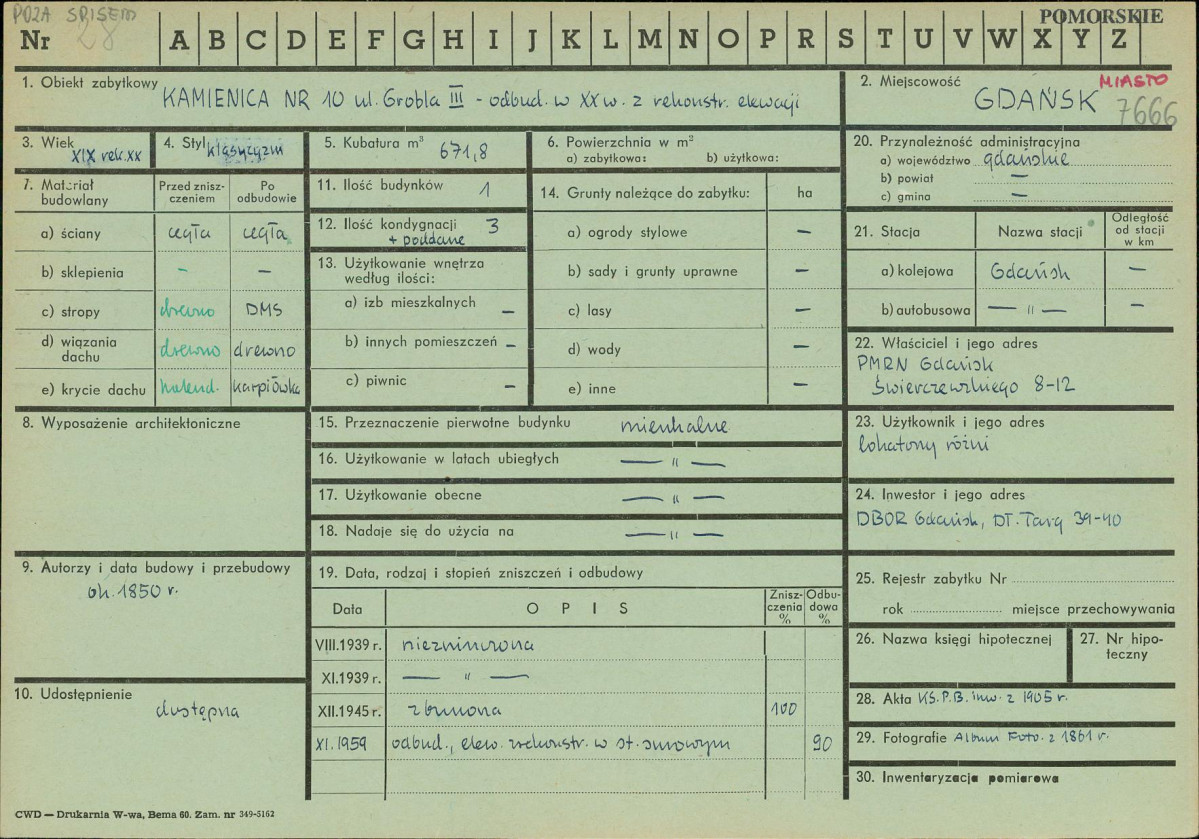 POZA SPISEM
28
POMORSKIE
Nr A B C D E F G H I J K L M N O P R S T U V W X Y Z
1. Obiekt zabytkowy KAMIENICA NR 10 ul. Grobla III - odbud. w XX w. z rekonstr. elewacji
2. Miejscowość MIASTO
GDAŃSK 7666
3. Wiek XIX rek. XX
4. Styl klasycyzm
5. Kubatura m³ 671,8
6. Powierzchnia w m²
a) zabytkowa: b) użytkowa:
20. Przynależność administracyjna
a) województwo gdańskie
b) powiat —
c) gmina —
7. Materiał budowlany
Przed zniszczeniem
Po odbudowie
a) ściany cegła cegła
b) sklepienia - —
c) stropy drewno DMS
d) wiązania dachu drewno drewno
e) krycie dachu holend. karpiówka
11. Ilość budynków 1
12. Ilość kondygnacji 3
+ poddasze
13. Użytkowanie wnętrza według ilości:
a) izb mieszkalnych —
b) innych pomieszczeń —
c) piwnic —
14. Grunty należące do zabytku: ha
a) ogrody stylowe —
b) sady i grunty uprawne —
c) lasy —
d) wody —
e) inne —
21. Stacja Nazwa stacji Odległość od stacji w km
a) kolejowa Gdańsk —
b) autobusowa — " — —
22. Właściciel i jego adres
PMRN Gdańsk
Świerczewskiego 8-12
8. Wyposażenie architektoniczne
15. Przeznaczenie pierwotne budynku mieszkalne
16. Użytkowanie w latach ubiegłych — " —
17. Użytkowanie obecne — " —
18. Nadaje się do użycia na — " —
23. Użytkownik i jego adres
lokatorzy różni
24. Inwestor i jego adres
DBOR Gdańsk, Dł. Targ 39-40
9. Autorzy i data budowy i przebudowy
ok. 1850 r.
19. Data, rodzaj i stopień zniszczeń i odbudowy
Data OPIS Zniszczenia % Odbudowa %
VIII.1939 r. niezniszczona
XI.1939 r. — " —
XII.1945 r. zburzona 100
XI.1959 odbud., elew. zrekonstr. w st. surowym 90
25. Rejestr zabytku Nr
rok miejsce przechowywania
26. Nazwa księgi hipotecznej
27. Nr hipoteczny
10. Udostępnienie
dostępna
28. Akta KS.P.B. inw. z 1905 r.
29. Fotografie Album Foto. z 1861 r.
30. Inwentaryzacja pomiarowa
CWD — Drukarnia W-wa, Bema 60. Zam. nr 349-5162